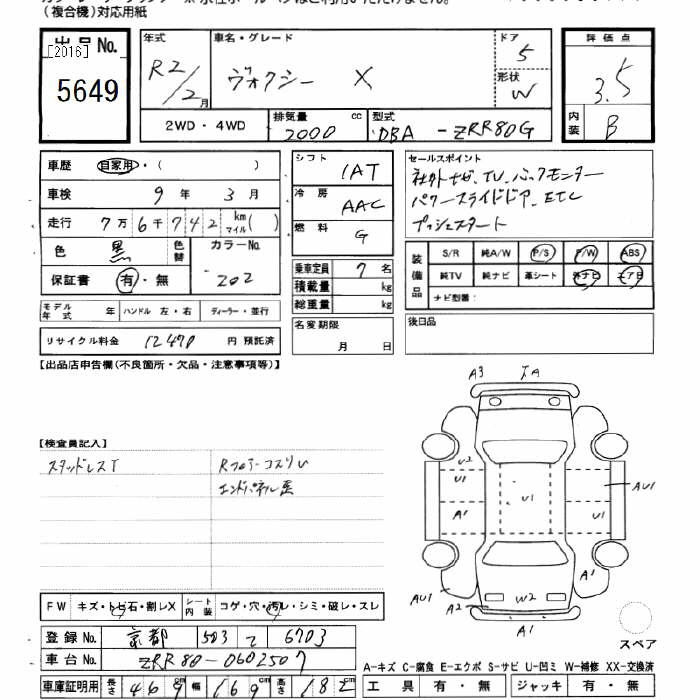 （複合機）対応用紙
出品No.
[2016]
5649
年式 R2/2月
車名・グレード ヴォクシー X
ドア 5
形状 W
評価点 3.5
内装 B
2WD・4WD
排気量 2000 cc
型式 DBA-ZRR80G
車歴 自家用・( )
車検 9年 3月
走行 7万6千742 km マイル( )
色 黒 色替 カラーNo. 202
保証書 有・無
モデル年式 年 ハンドル 左・右 ディーラー・並行
リサイクル料金 12470 円 預託済
シフト IAT
冷房 AAC
燃料 G
乗車定員 7名
積載量 kg
総重量 kg
名変期限 月 日
セールスポイント
社外ナビ、TV、バックモニター
パワースライドドア、ETC
プッシュスタート
装備品
S/R 純A/W P/S P/W ABS
純TV 純ナビ 革シート 外ナビ エアB
ナビ型番：
後日品
【出品店申告欄(不良箇所・欠品・注意事項等)】
【検査員記入】
スタッドレスT
RフロアーコスリU
エンドパネル歪
A3
A
U2
U1
U1
U1
AU1
A1
A1
AU1
A2
W2
A1
スペア
FW キズ・トビ石・割レX シート内装 コゲ・穴・汚レ・シミ・破レ・スレ
登録No. 京都 503 て 6703
車台No. ZRR80-0602507
車庫証明用 長さ 469cm 幅 169cm 高さ 182
A-キズ C-腐食 E-エクボ S-サビ U-凹ミ W-補修 XX-交換済
工具 有・無 ジャッキ 有・無